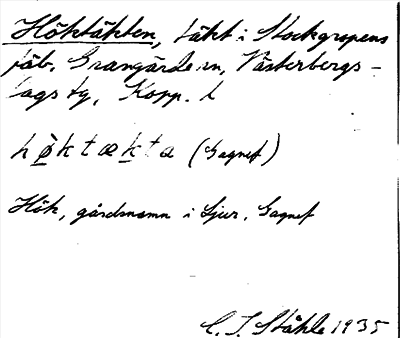 Höktäkten, täkt i Stockgropens
fäb. Grangärde sn, Västerbergs-
lags tg, Kopp. l
høktækta (Gagnef)
Hök, gårdsnamn i Sjur, Gagnef
C. I. Ståhle 1935